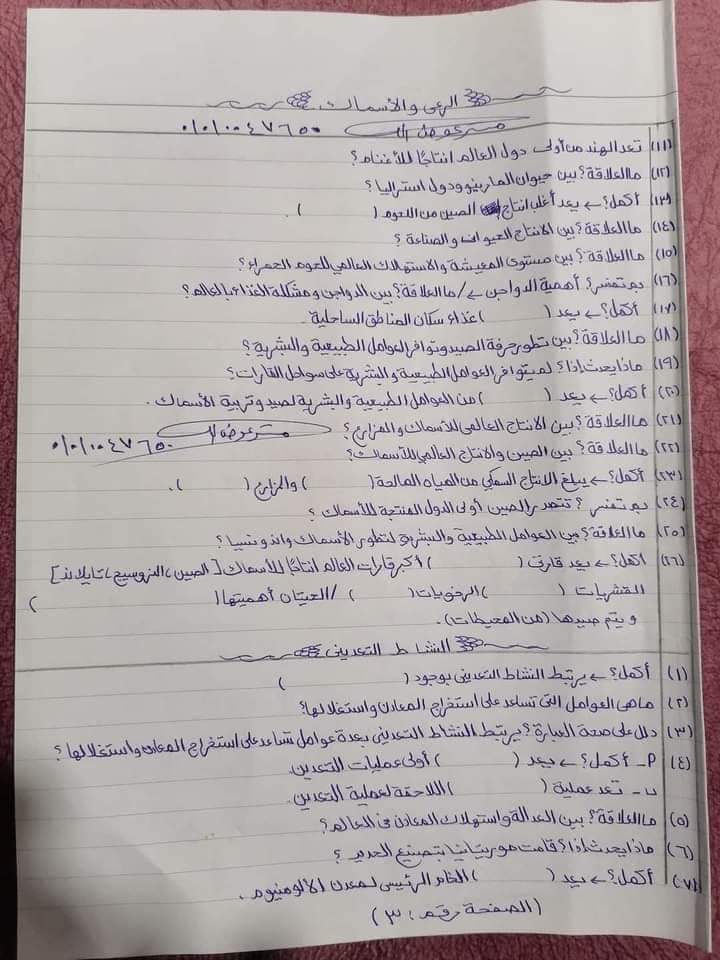 الرعى والأسماك
٠١٠١٠٠٤٧٦٥٠
(١١) تعد الهند من أولى دول العالم انتاجًا للأغنام؟
(١٢) ما العلاقة؟ بين حيوان المارينو ودول استراليا؟
(١٣) أكمل؟ ← يعد أغلب انتاج الصين من اللحوم (          ).
(١٤) ما العلاقة؟ بين الانتاج الحيوانى والصناعة ؟
(١٥) ما العلاقة؟ بين مستوى المعيشة والاستهلاك العالمي للحوم الحمراء؟
(١٦) بم تفسر؟ أهمية الدواجن ← / ما العلاقة؟ بين الدواجن ومشكلة الغذاء بالعالم؟
(١٧) أكمل؟ ← يعد (          ) غذاء سكان المناطق الساحلية.
(١٨) ما العلاقة؟ بين تطور حرفة الصيد وتوافر العوامل الطبيعية والبشرية ؟
(١٩) ماذا يحدث إذا؟ لم يتوافر العوامل الطبيعية والبشرية على سواحل القارات؟
(٢٠) أكمل؟ ← يعد (          ) من العوامل الطبيعية والبشرية لصيد وتربية الأسماك.
(٢١) ما العلاقة؟ بين الانتاج العالمى للأسماك والمزارع؟
٠١٠١٠٠٤٧٦٥٠
(٢٢) ما العلاقة؟ بين الصين والانتاج العالمي للأسماك؟
(٢٣) أكمل؟ ← يبلغ الانتاج السمكي من المياه المالحة (          ) والمزارع (          ).
(٢٤) بم تفسر ؟ تتصدر الصين أولى الدول المنتجة للأسماك ؟
(٢٥) ما العلاقة؟ بين العوامل الطبيعية والبشرية لتطور الأسماك واندونسيا ؟
(٢٦) أكمل؟ ← يعد قارتى (          ) أكبر قارات العالم انتاجًا للأسماك [الصين، النرويج، تايلاند]
القشريات (          ) الرخويات (          ) / الحيتان أهميتها (          )
ويتم صيدها (من المحيطات).
النشاط التعدينى
(١) أكمل؟ ← يرتبط النشاط التعدينى بوجود (          )
(٢) ما هى العوامل التى تساعد على استخراج المعادن واستغلالها؟
(٣) دلل على صحة العبارة؟ يرتبط النشاط التعدينى بعدة عوامل تساعد على استخراج المعادن واستغلالها ؟
(٤) أ - أكمل؟ ← يعد (          ) أولى عمليات التعدين.
ب - تعد عملية (          ) اللاحقة لعملية التعدين.
(٥) ما العلاقة؟ بين العدالة واستهلاك المعادن فى العالم؟
(٦) ماذا يحدث إذا؟ قامت موريتانيا بتصنيع الحديد ؟
(٧) أكمل؟ ← يعد (          ) الخام الرئيسى لمعدن الالومنيوم.
(الصفحة رقم : ٣)